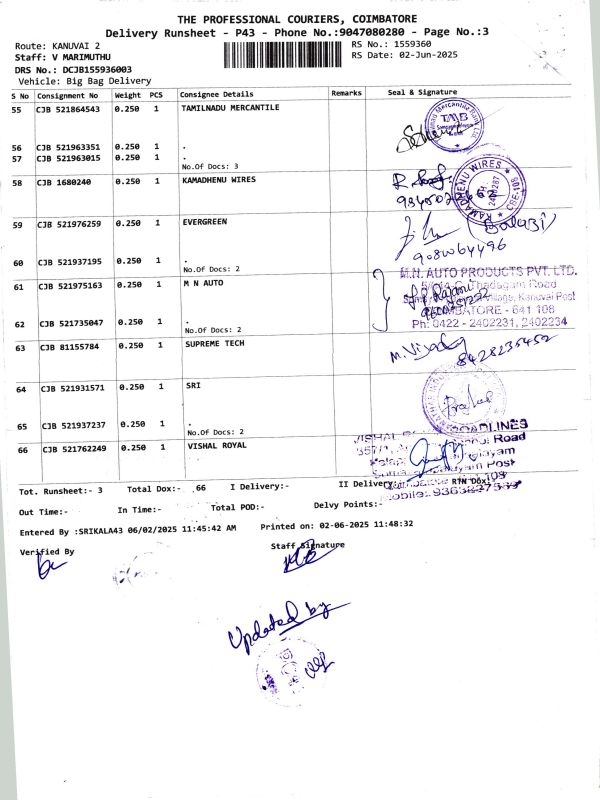 THE PROFESSIONAL COURIERS, COIMBATORE
Delivery Runsheet - P43 - Phone No.:9047080280 - Page No.:3
Route: KANUVAI 2
RS No.: 1559360
Staff: V MARIMUTHU
RS Date: 02-Jun-2025
DRS No.: DCJB155936003
Vehicle: Big Bag Delivery
S No Consignment No Weight PCS Consignee Details Remarks Seal & Signature
55 CJB 521864543 0.250 1 TAMILNADU MERCANTILE
TMB
56 CJB 521963351 0.250 1 .
57 CJB 521963015 0.250 1 .
No.Of Docs: 3
58 CJB 1680240 0.250 1 KAMADHENU WIRES
KAMADHENU WIRES
59 CJB 521976259 0.250 1 EVERGREEN
(Balaji)
9080064496
60 CJB 521937195 0.250 1 .
No.Of Docs: 2
61 CJB 521975163 0.250 1 M N AUTO
M.N. AUTO PRODUCTS PVT. LTD.
Thadagam Road
Village, Kanuvai Post
COIMBATORE - 641 108
Ph: 0422 - 2402231, 2402234
62 CJB 521735047 0.250 1 .
No.Of Docs: 2
63 CJB 81155784 0.250 1 SUPREME TECH
8428235452
64 CJB 521931571 0.250 1 SRI
65 CJB 521937237 0.250 1 .
No.Of Docs: 2
66 CJB 521762249 0.250 1 VISHAL ROYAL
Road
Post
Tot. Runsheet:- 3 Total Dox:- 66 I Delivery:- II Delivery:- RTN Dox:-
Out Time:- In Time:- Total POD:- Delvy Points:-
Entered By :SRIKALA43 06/02/2025 11:45:42 AM Printed on: 02-06-2025 11:48:32
Verified By
Staff Signature
Updated by